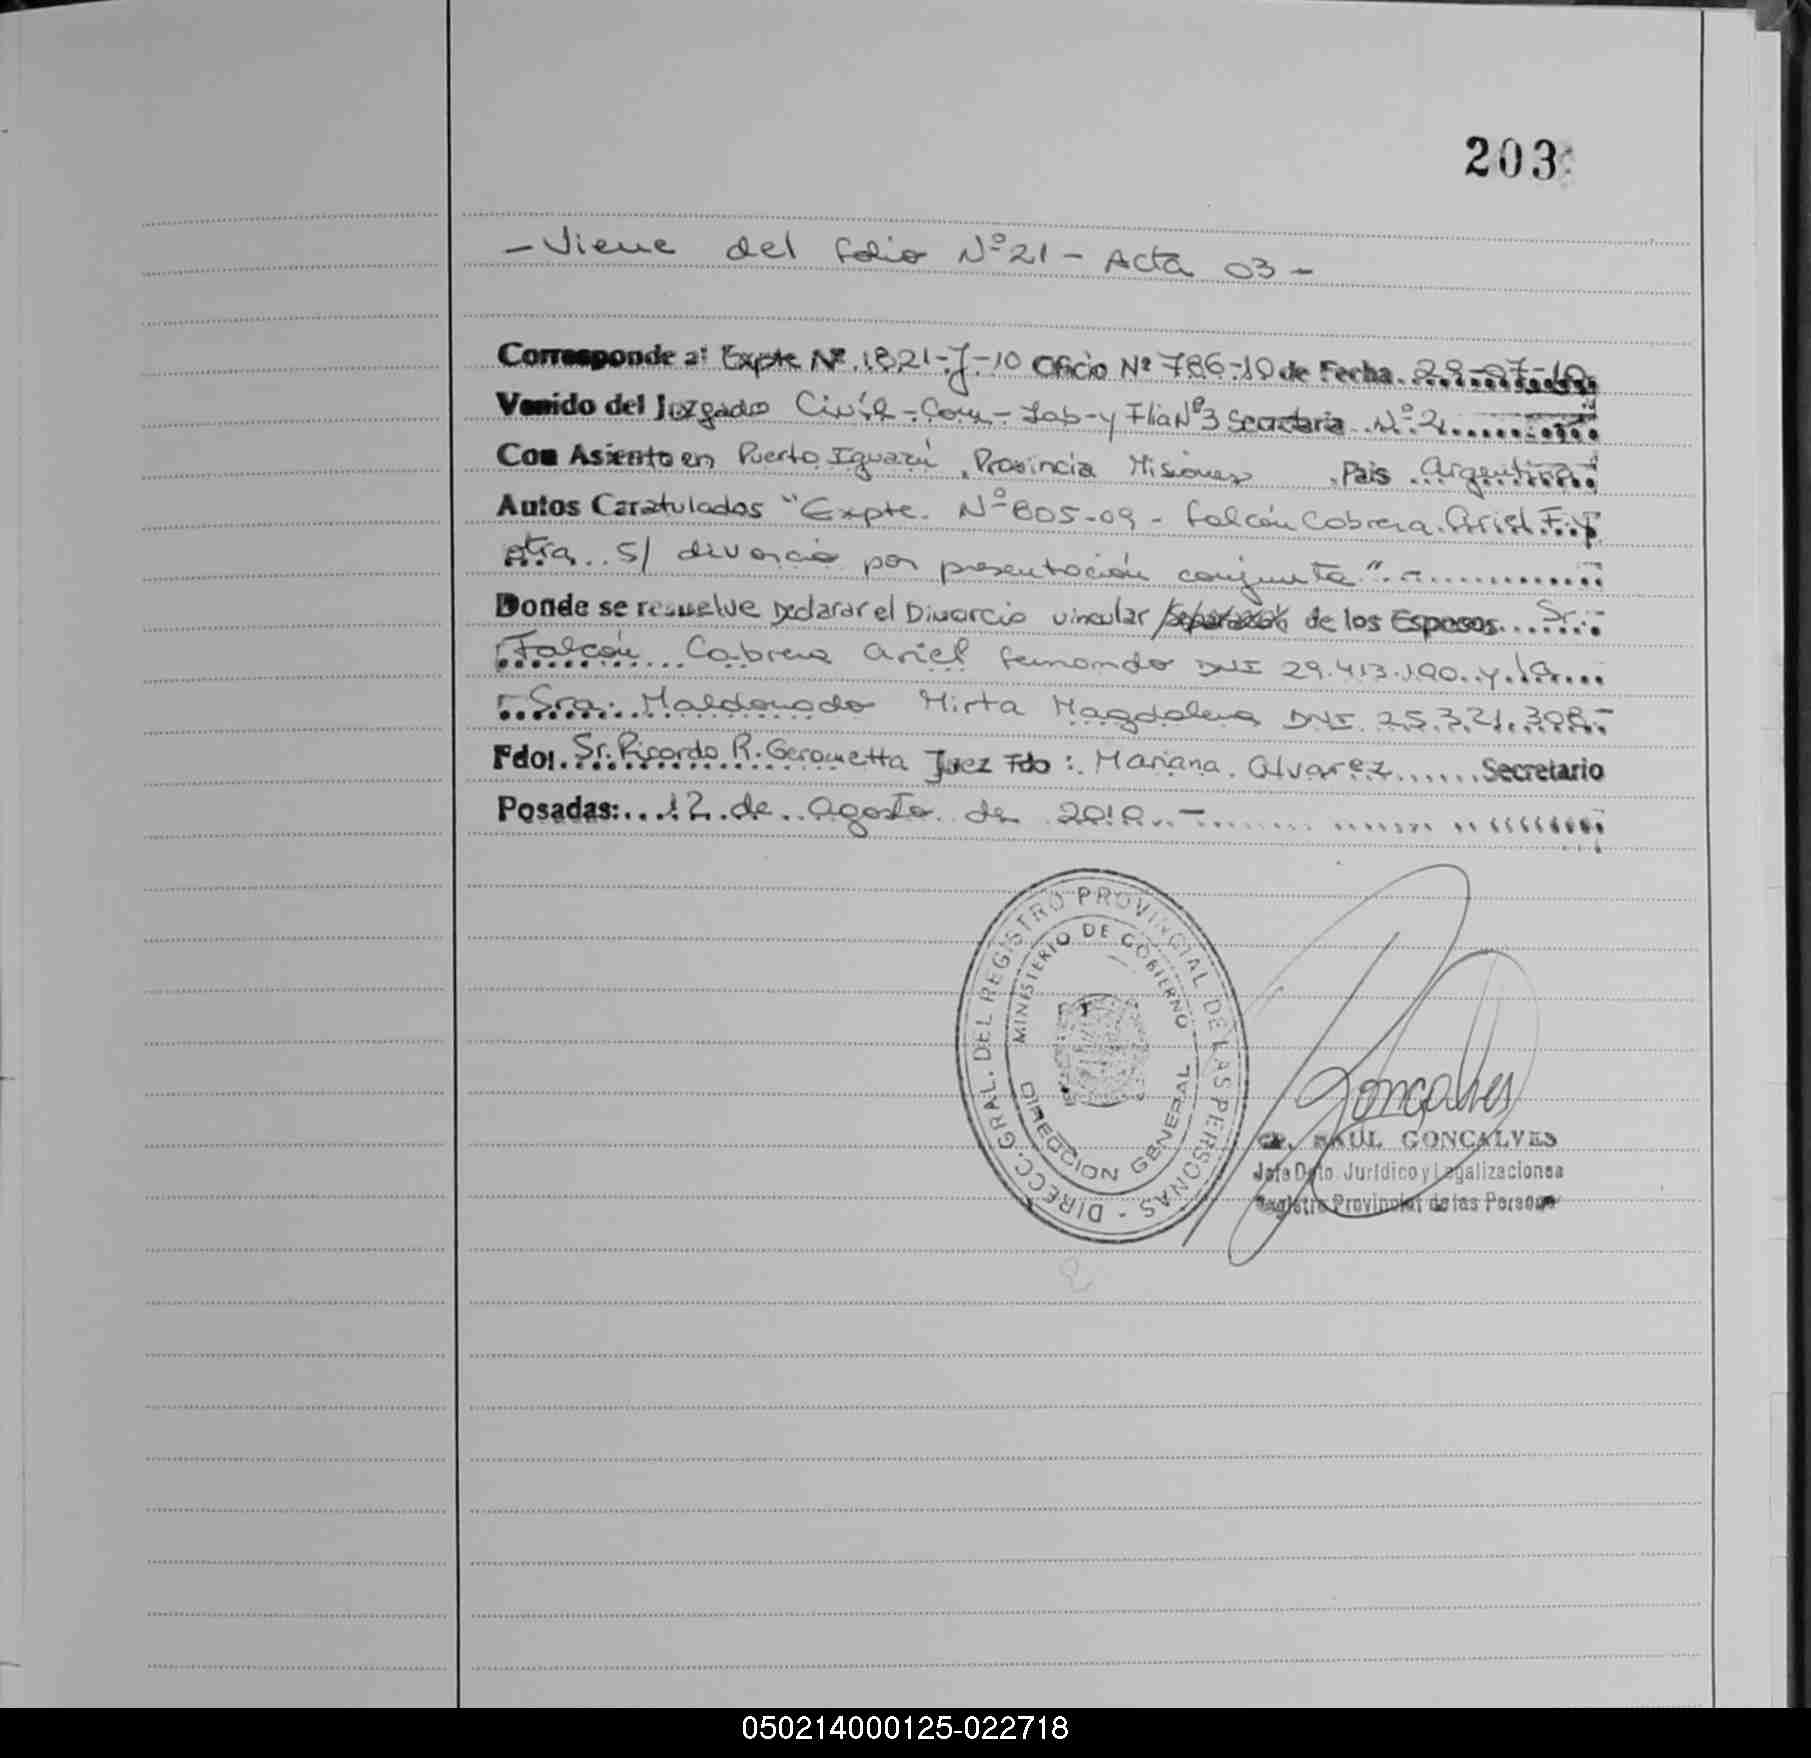 203
- Viene del folio Nº 21 - Acta 03 -
Corresponde a: Expte Nº 1821-J-10 Oficio Nº 786-10 de Fecha 29-07-10
Venido del Juzgado Civil - Com - Lab - y Flia Nº 3 Secretaria Nº 2
Con Asiento en Puerto Iguazú Provincia Misiones Pais Argentina
Autos Caratulados "Expte. Nº 805-09 - Falcón Cabrera Ariel F. y
otra S/ divorcio por presentación conjunta".-
Donde se resuelve Declarar el Divorcio vincular / de los Esposos Sr.
Falcón Cabrera Ariel Fernando DNI 29.413.190 y la
Sra. Maldonado Mirta Magdalena DNI 25.321.308.-
Fdo: Sr. Ricardo R. Gerometta Juez Fdo: Mariana Alvarez Secretario
Posadas: 12 de agosto de 2010.-
DIRECC. GRAL. DEL REGISTRO PROVINCIAL DE LAS PERSONAS -
MINISTERIO DE GOBIERNO
DIRECCION GENERAL
Goncalves
RAUL GONCALVES
Jefe Dpto. Jurídico y Legalizaciones
Registro Provincial de las Personas
050214000125-022718